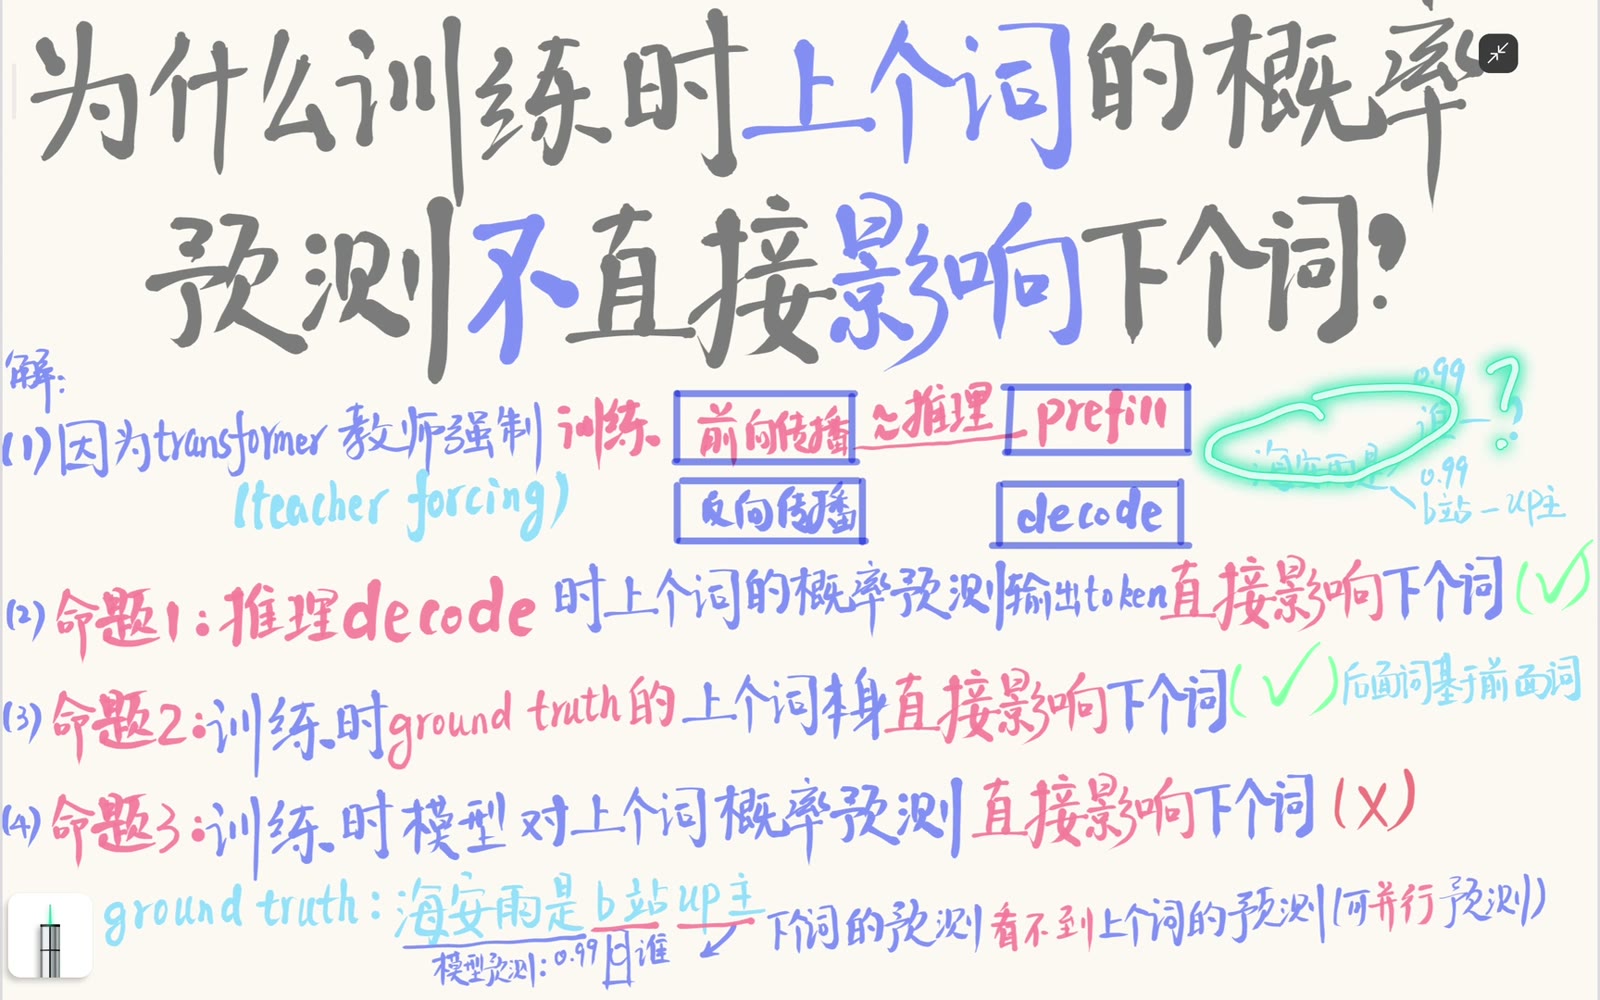 为什么训练时上个词的概率
预测不直接影响下个词?
解:
(1)因为transformer教师强制 训练 前向传播 ≈推理 prefill
(teacher forcing) 反向传播 decode
0.99
谁
?
海安雨是
0.99
b站-up主
(2)命题1:推理decode时上个词的概率预测输出token直接影响下个词(✓)
(3)命题2:训练时ground truth的上个词本身直接影响下个词(✓)后面词基于前面词
(4)命题3:训练时模型对上个词概率预测直接影响下个词(x)
ground truth:海安雨是b站up主 下个词的预测看不到上个词的预测(可并行预测)
模型预测:0.99 谁